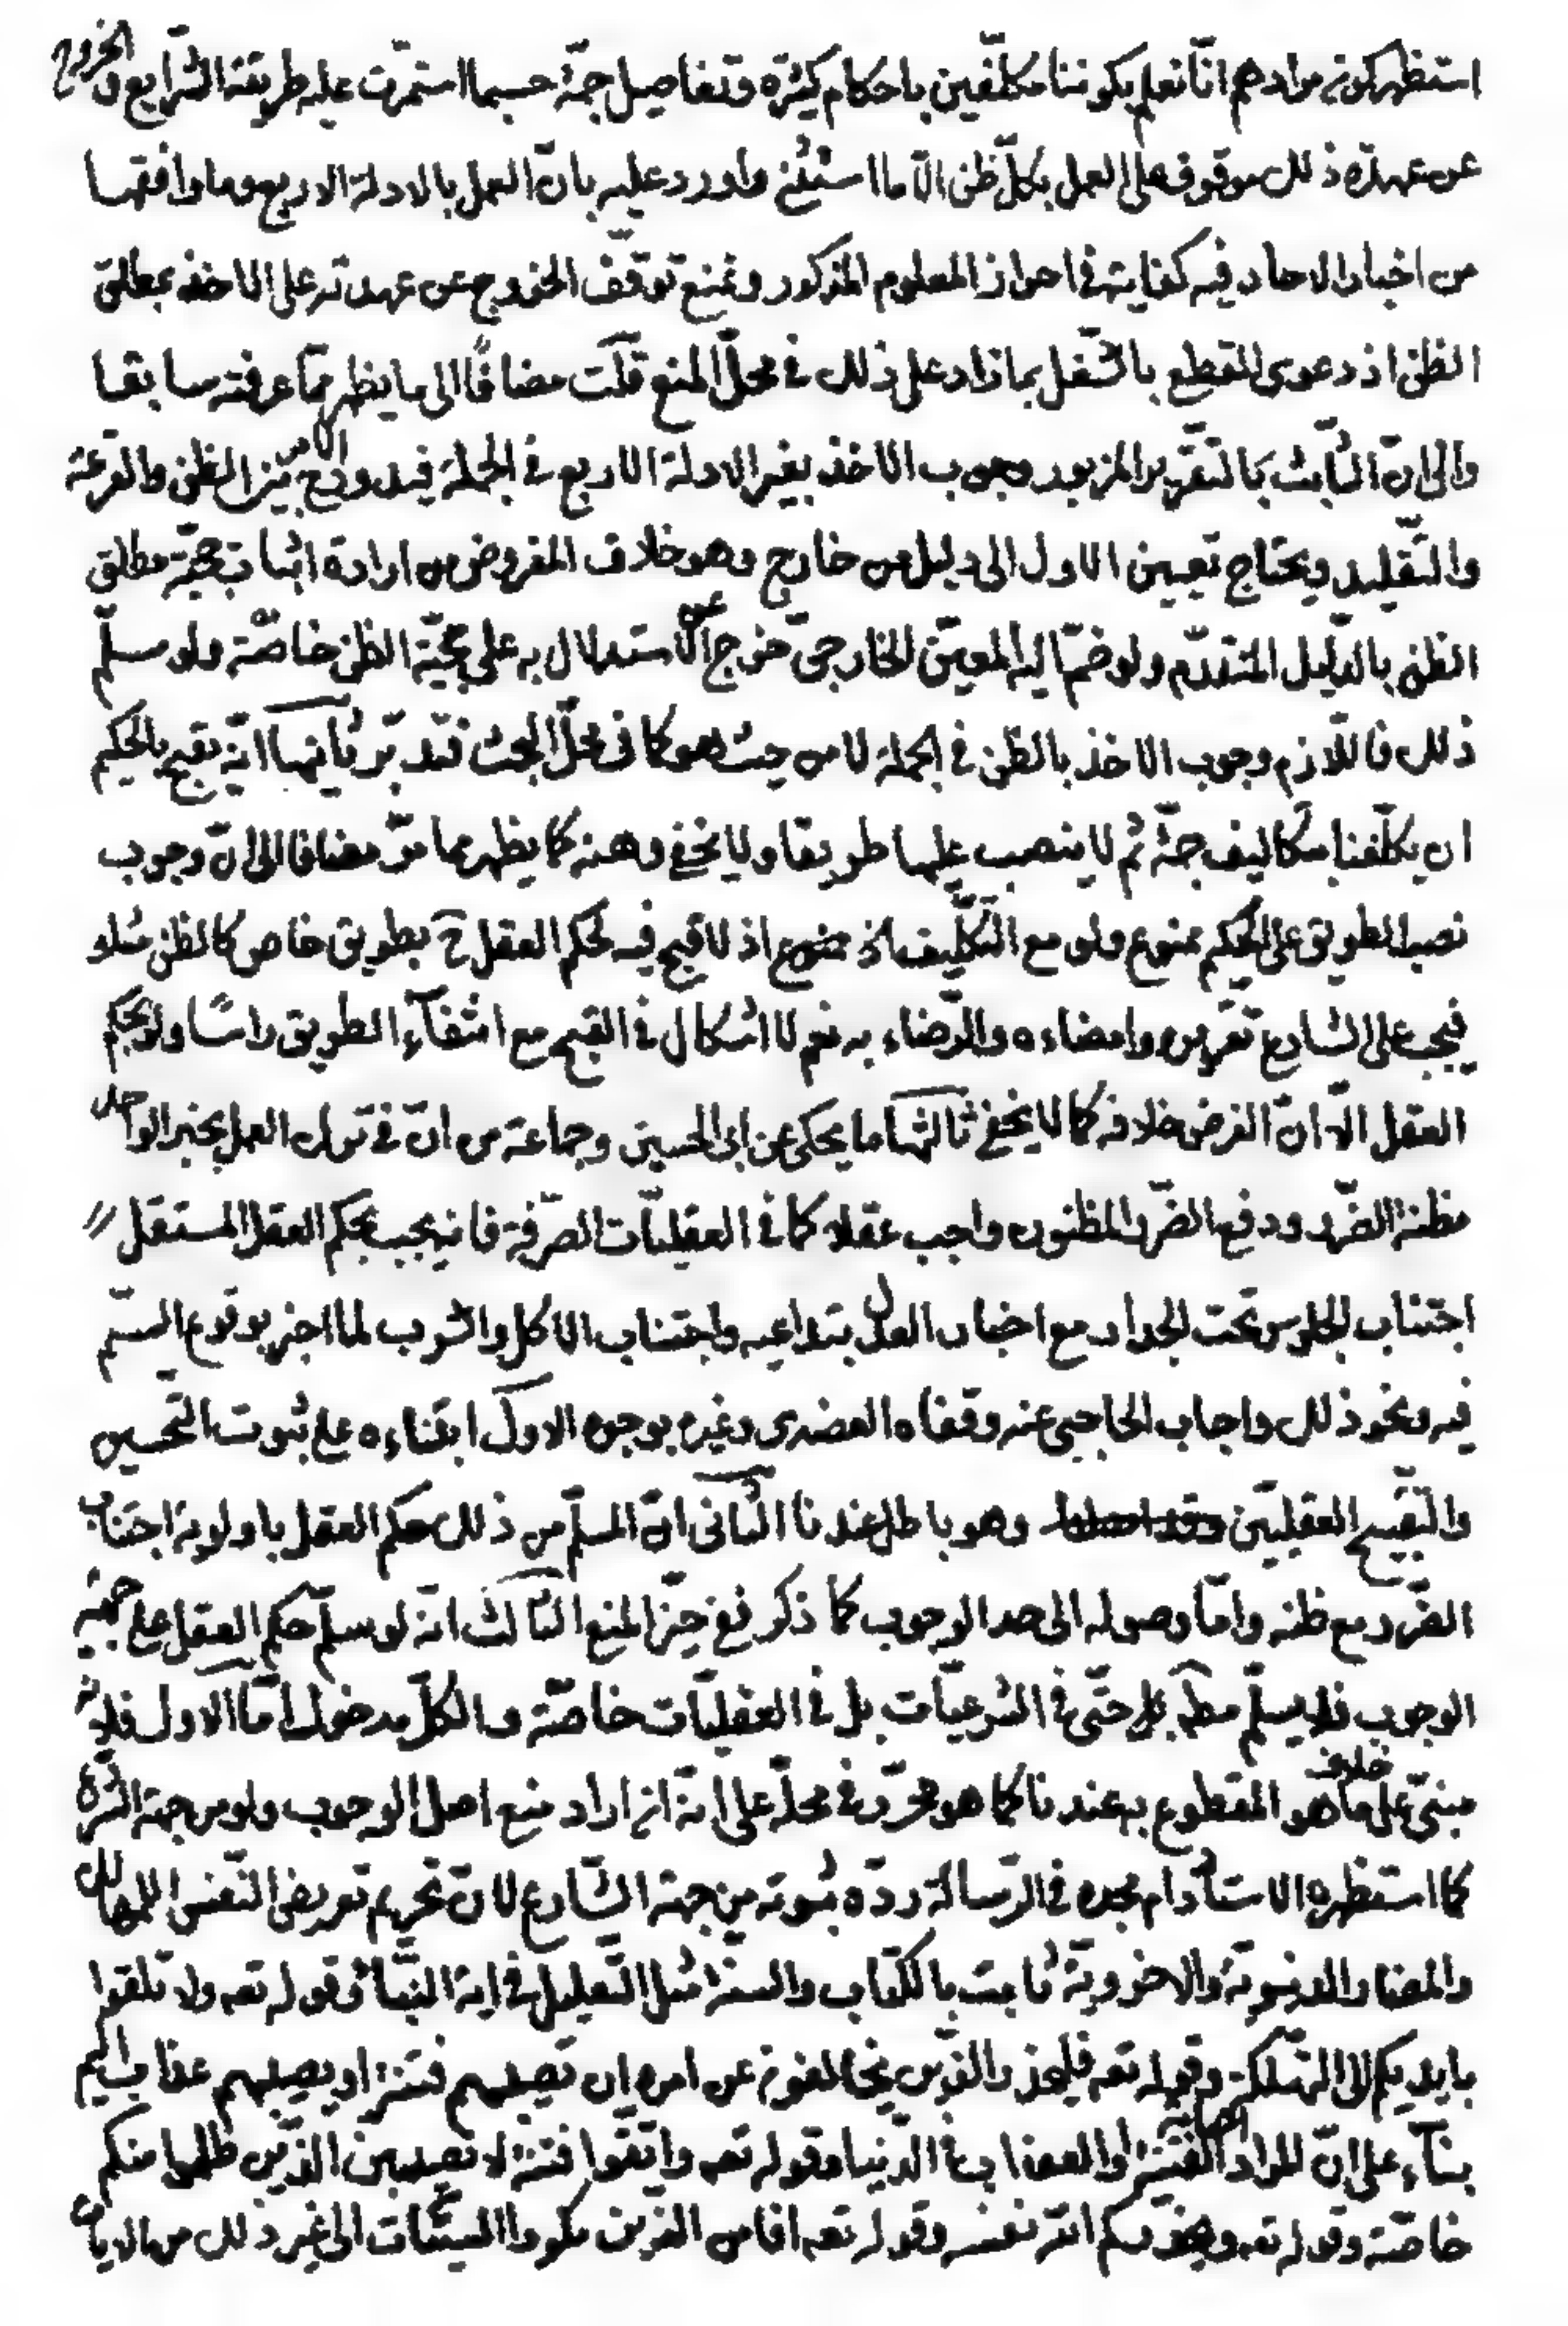 استظهر كونه مرادهم انّا نعلم بكوننا مكلّفين باحكام كثيرة وتفاصيل جمّة حسبما استمرّت عليه طريقة الشّرايع والخروج
عن عهدة ذلك موقوف على العمل بكلّ ظن الّا ما استثنى واورد عليه بانّ العمل بالادلة الاربع وما وافقها
من اخبار الاحاد فيه كفاية فى احراز المعلوم المذكور ونمنع توقّف الخروج عن عهدته على الاخذ بمطلق
الظن اذ دعوى القطع بالشّغل بما زاد على ذلك فى محلّ المنع قلت مضافًا الى ما يظهر ممّا عرفته سابقا
والى انّ الثّابت بالتقرير المزبور وجوب الاخذ بغير الادلة الاربع فى الجملة فيدور الامر ح بين الظن والقرعة
والتّقليد ويحتاج تعيين الاول الى دليل من خارج وهو خلاف المفروض من ارادة اثبات حجيّة مطلق
الظن بالدّليل المتقدّم ولو ضمّ اليه المعيّن الخارجىّ خرج عن الاستدلال به على حجيّة الظن خاصّة ولو سلّم
ذلك فاللّازم وجوب الاخذ بالظن فى الجملة لا من حيث هو كما فى محلّ البحث فتدبّر ثانيها انّه يقبح بالحكيم
ان يكلّفنا بتكاليف جمّة ثم لا ينصب عليها طريقا ولا يخفى وهنه كما يظهر مما مرّ مضافا الى انّ وجوب
نصب الطريق على الحكيم ممنوع ولو مع التّكليف اذ لا قبح فيه لحكم العقل ح بطريق خاص كالظن مثلا
فيجب على الشارع تقريره وامضاءه والرّضاء به نعم لا اشكال فى القبح مع انتفآء الطريق راسًا ولو بحكم
العقل الّا انّ الفرض خلافه كما لا يخفى ثالثها ما يحكى عن ابى الحسين وجماعة من انّ فى ترك العمل بخبر الواحد
مظنة الضّرر ودفع الضّرر المظنون واجب عقلا كما فى العقليّات الصّرفة فانه يجب بحكم العقل المستقل
اجتناب الجلوس تحت الجدار مع اخبار العدل بتداعيه واجتناب الاكل والشرب لما اخبر بوقوع السّمّ
فيه ونحو ذلك واجاب الحاجبى عنه وقفاه العضدى وغيره بوجوه الاوّل ابتناءه على ثبوت التّحسين
والتّقبيح العقليّين وهو باطل عندنا الثّانى انّ المسلّم من ذلك حكم العقل باولوية اجتناب
الضّرر مع ظنه وامّا وصوله الى حد الوجوب كما ذكر ففى حيّز المنع الثّالث انّه لو سلّم حكم العقل على جهة
الوجوب فلا يسلّم مطلقا حتّى فى الشرعيّات بل فى العقليّات خاصّة والكلّ مدخول امّا الاول فلانّه
مبنىّ على خلاف ما هو المقطوع به عندنا كما هو محرّر فى محلّه على انّه ان اراد منع اصل الوجوب ولو من جهة الشّرع
كما استظهره الاستاد دام مجده فى الرّسالة ردّه ثبوته من جهة الشّارع لانّ تحريم تعريض النّفس للمهالك
والمضار الدنيويّة والاخرويّة ثابت بالكتاب والسنّة مثل التّعليل فى اية النّبأ وقوله تعه ولا تلقوا
بايديكم الى التّهلكة وقوله تعه فليحذر الّذين يخالفون عن امره ان تصيبهم فتنة او يصيبهم عذاب اليم
بنآء على انّ المراد اصابة الفتنة او العذاب فى الدّنيا وقوله تعه واتّقوا فتنة لا تصيبنّ الّذين ظلموا منكم
خاصّة وقوله تعه ويحذّركم الله نفسه وقوله تعه افامن الّذين مكروا السيّئات الى غير ذلك من الايات